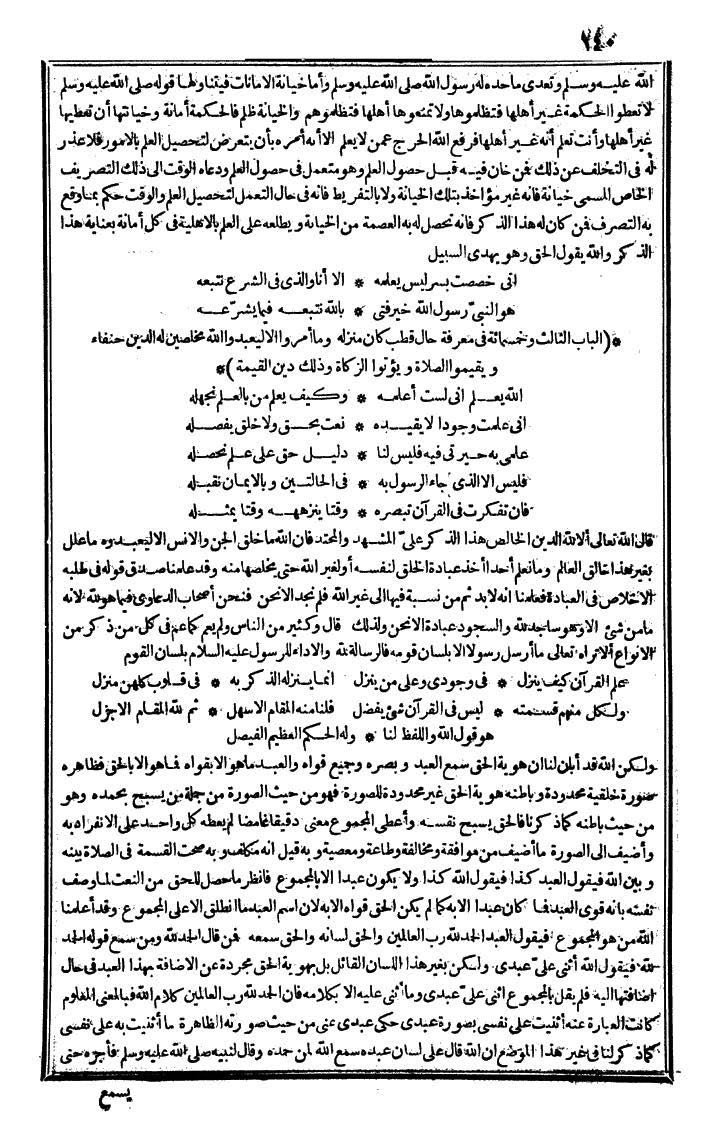 ٢٤٠
الله عليه وسلم وتعدى ما حده له رسول الله صلى الله عليه وسلم وأما خيانة الامانات فيتناولها قوله صلى الله عليه وسلم
لا تعطوا الحكمة غير أهلها فتظلموها ولا تمنعوها أهلها فتظلموهم والخيانة ظلم فالحكمة أمانة وخيانتها أن تعطيها
غير أهلها وأنت تعلم أنه غير أهلها فرفع الله الحرج عمن لا يعلم الا أنه أمره بأن يتعرض لتحصيل العلم بالامور فلا عذر
له فى التخلف عن ذلك فمن خان فيه قبل حصول العلم وهو متعمل فى حصول العلم ودعاه الوقت الى ذلك التصريف
الخاص المسمى خيانة فانه غير مؤاخذ بتلك الخيانة ولا بالتفريط فانه فى حال التعمل لتحصيل العلم والوقت حكم بما وقع
به التصرف فمن كان له هذا الذكر فانه تحصل له به العصمة من الخيانة ويطلعه على العلم بالاهلية فى كل أمانة بعناية هذا
الذكر والله يقول الحق وهو يهدى السبيل
انى خصصت بسر ليس يعلمه * الا أنا والذى فى الشرع نتبعه
هو النبىّ رسول الله خير فتى * بالله نتبعه فيما يشرّعه
*(الباب الثالث وخمسمائة فى معرفة حال قطب كان منزله وما أمروا الا ليعبدوا الله مخلصين له الدين حنفاء
ويقيموا الصلاة ويؤتوا الزكاة وذلك دين القيمة)*
الله يعلم انى لست أعلمه * وكيف يعلم من بالعلم نجهله
انى علمت وجودا لا يقيده * نعت بحق ولا خلق يفصله
علمى به حيرتى فيه فليس لنا * دليل حق على علم نحصله
فليس الا الذى جاء الرسول به * فى الحالتين وبالايمان نقبله
فان تفكرت فى القرآن تبصره * وقتا ينزهه وقتا يمثله
قال الله تعالى ألا لله الدين الخالص هذا الذكر على المشهد والمحتد فان الله ما خلق الجن والانس الا ليعبدوه ما علل
بغير هذا خالق العالم وما نعلم أحدا أخذ عبادة الخلق لنفسه أو لغير الله حتى يخلصها منه وقد علمنا صدق قوله فى طلبه
الاخلاص فى العبادة فعلمنا انه لا بد ثم من نسبة فيها الى غير الله فلم نجد الا نحن فنحن أصحاب الدعاوى فيما هو لله لانه
ما من شئ الا وهو ساجد لله والسجود عبادة الا نحن ولذلك قال وكثير من الناس ولم يعم كما عم فى كل من ذكر من
الانواع ألا تراه تعالى ما أرسل رسولا الا بلسان قومه فالرسالة لله والاداء للرسول عليه السلام بلسان القوم
علم القرآن كيف ينزل * فى وجودى وعلى من ينزل انما ينزله الذكر به * فى قلوب كلهن منزل
ولكل منهم قسمته * ليس فى القرآن شئ يفضل فلنا منه المقام الاسهل * ثم لله المقام الاجزل
هو قول الله واللفظ لنا * وله الحكم العظيم الفيصل
ولكن الله قد أبان لنا ان هوية الحق سمع العبد وبصره وجميع قواه والعبد ما هو الا بقواه فما هو الا بالحق فظاهره
صورة خلقية محدودة وباطنه هوية الحق غير محدودة للصورة فهو من حيث الصورة من جملة من يسبح بحمده وهو
من حيث باطنه كما ذكرنا فالحق يسبح نفسه وأعطى المجموع معنى دقيقا غامضا لم يعطه كل واحد على الانفراد به
وأضيف الى الصورة ما أضيف من موافقة ومخالفة وطاعة ومعصية وبه قيل انه مكلف وبه صحت القسمة فى الصلاة بينه
وبين الله فيقول العبد كذا فيقول الله كذا ولا يكون عبدا الا بالمجموع فانظر ما حصل للحق من النعت لما وصف
نفسه بانه قوى العبد فما كان عبدا الا به كما لم يكن الحق قواه الا به لان اسم العبد ما انطلق الا على المجموع وقد أعلمنا
الله من هو المجموع فيقول العبد الحمد لله رب العالمين والحق لسانه والحق سمعه فمن قال الحمد لله ومن سمع قوله الحمد
لله فيقول الله أثنى علىّ عبدى ولكن بغير هذا اللسان القائل بل بهوية الحق مجردة عن الاضافة بهذا العبد فى حال
اضافتها اليه فلم يقل بالمجموع اثنى علىّ عبدى وما أثنى عليه الا بكلامه فان الحمد لله رب العالمين كلام الله فبالمعنى المفهوم
كانت العبارة عنه أثنيت على نفسى بصورة عبدى حكى عبدى عنى من حيث صورته الظاهرة ما أثنيت به على نفسى
كما ذكر لنا فى غير هذا الموضع ان الله قال على لسان عبده سمع الله لمن حمده وقال لنبيه صلى الله عليه وسلم فأجره حتى
يسمع